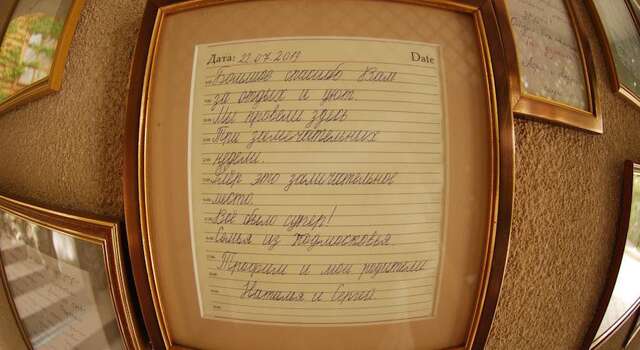 Дата: 22.07.2019 Date
Большое спасибо Вам
за отдых и уют.
Мы провели здесь
Три замечательных
недели.
это замичательное
место.
Всё было супер!
Семья из Подмосковья
Трофим и мои родители
Наталья и Сергей